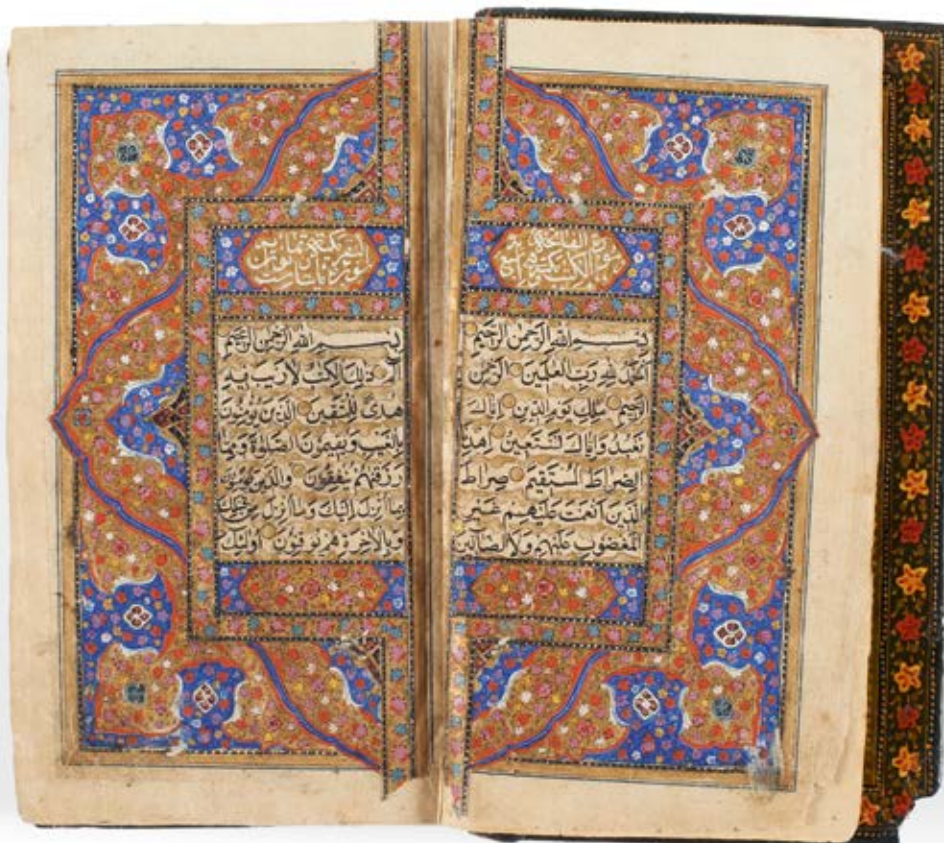 سورة الفاتحة
الكتاب
بسم الله الرحمن الرحيم
الحمد لله رب العلمين الرحمن
الرحيم ملك يوم الدين اياك
نعبد واياك نستعين اهدنا
الصراط المستقيم صراط
الذين انعمت عليهم غير
المغضوب عليهم ولا الضالين
بسم الله الرحمن الرحيم
الم ذلك الكتب لا ريب فيه
هدى للمتقين الذين يؤمنون
بالغيب ويقيمون الصلوة ومما
رزقنهم ينفقون والذين يؤمنون
بما انزل اليك وما انزل من قبلك
وبالاخرة هم يوقنون اولئك